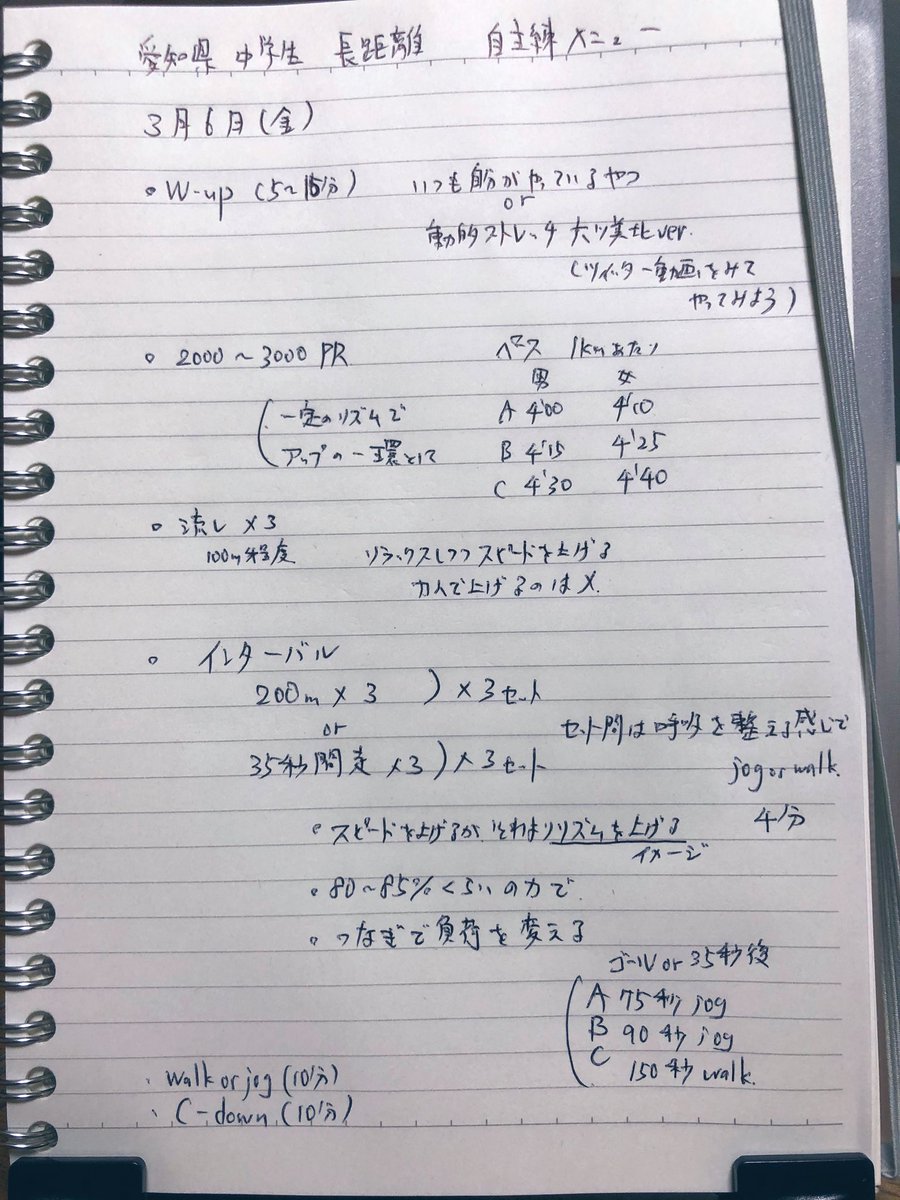 愛知県 中学生 長距離 自主練メニュー
3月6日(金)
• W-up (5~15分) いつも自分がやっているやつ
or
動的ストレッチ 大ver.
(ツイッター動画をみて
やってみよう)
• 2000~3000 PR ペース 1kmあたり
男 女
(一定のリズムで A 4'00 4'10
アップの一環として B 4'15 4'25
C 4'30 4'40
• 流し×3
100m程度 リラックスしつつスピードを上げる
力んで上げるのは×
• インターバル
200m×3 )×3セット
or セット間は呼吸を整える感じで
35秒間走×3)×3セット jog or walk.
4分
• スピードを上げるが、それよりリズムを上げる
イメージ
• 80~85%くらいの力で
• つなぎで負荷を変える
ゴールor 35秒後
(A 75秒 jog
B 90秒 jog
C 150秒 walk.
• Walk or jog (10分)
• C-down (10分)